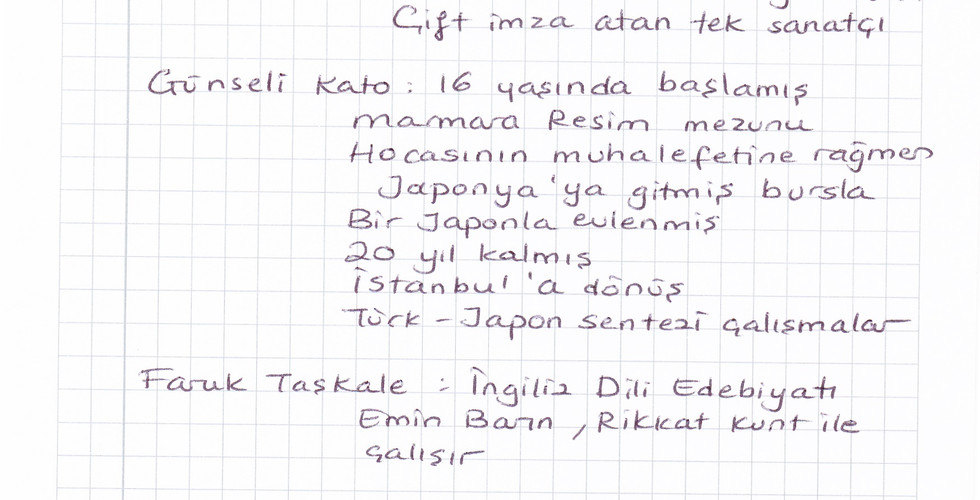 Çift imza atan tek sanatçı
Günseli Kato : 16 yaşında başlamış
Marmara Resim mezunu
Hocasının muhalefetine rağmen
Japonya'ya gitmiş bursla
Bir Japonla evlenmiş
20 yıl kalmış
İstanbul'a dönüş
Türk - Japon sentezi çalışmalar
Faruk Taşkale : İngiliz Dili Edebiyatı
Emin Barın, Rikkat Kunt ile
çalışır